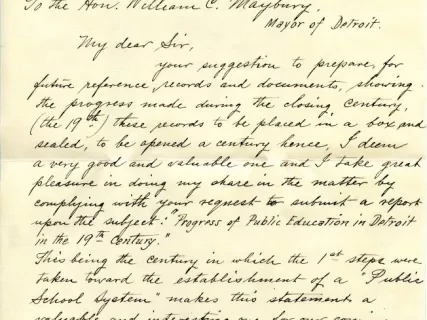 To the Hon. William C. Maybury,
Mayor of Detroit.
My dear Sir,
your suggestion to prepare, for
future reference, records and documents, showing
the progress made during the closing century,
(the 19th) these records to be placed in a box and
sealed, to be opened a century hence, I deem
a very good and valuable one and I take great
pleasure in doing my share in the matter by
complying with your request to submit a report
upon the subject: "Progress of Public Education in Detroit
in the 19th Century."
This being the century in which the 1st steps were
taken toward the establishment of a "Public
School System" makes this statement a
valuable and interesting one for our